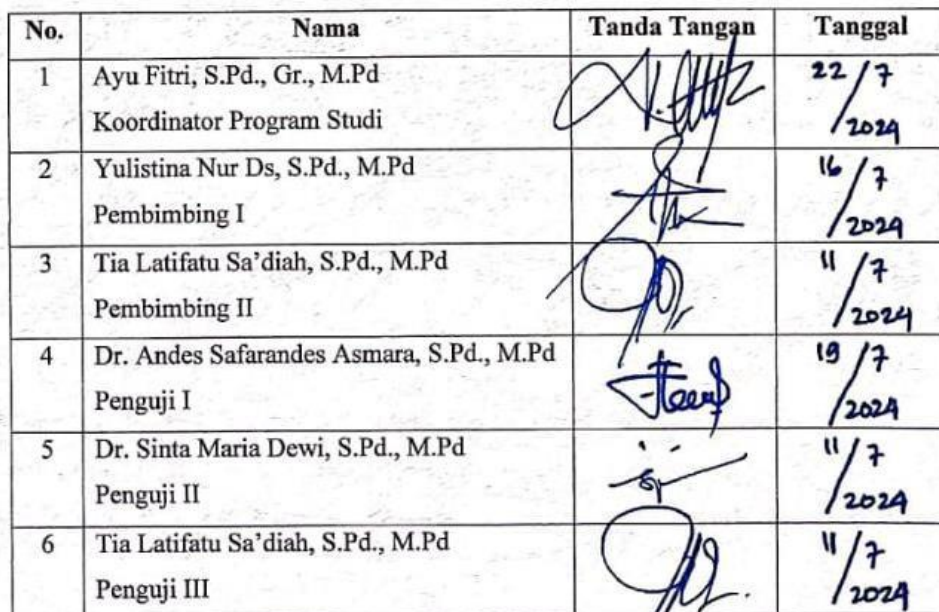 No. Nama Tanda Tangan Tanggal
1 Ayu Fitri, S.Pd., Gr., M.Pd 22/7
Koordinator Program Studi /2024
2 Yulistina Nur Ds, S.Pd., M.Pd 16/7
Pembimbing I /2024
3 Tia Latifatu Sa'diah, S.Pd., M.Pd 11/7
Pembimbing II /2024
4 Dr. Andes Safarandes Asmara, S.Pd., M.Pd 19/7
Penguji I /2024
5 Dr. Sinta Maria Dewi, S.Pd., M.Pd 11/7
Penguji II /2024
6 Tia Latifatu Sa'diah, S.Pd., M.Pd 11/7
Penguji III /2024